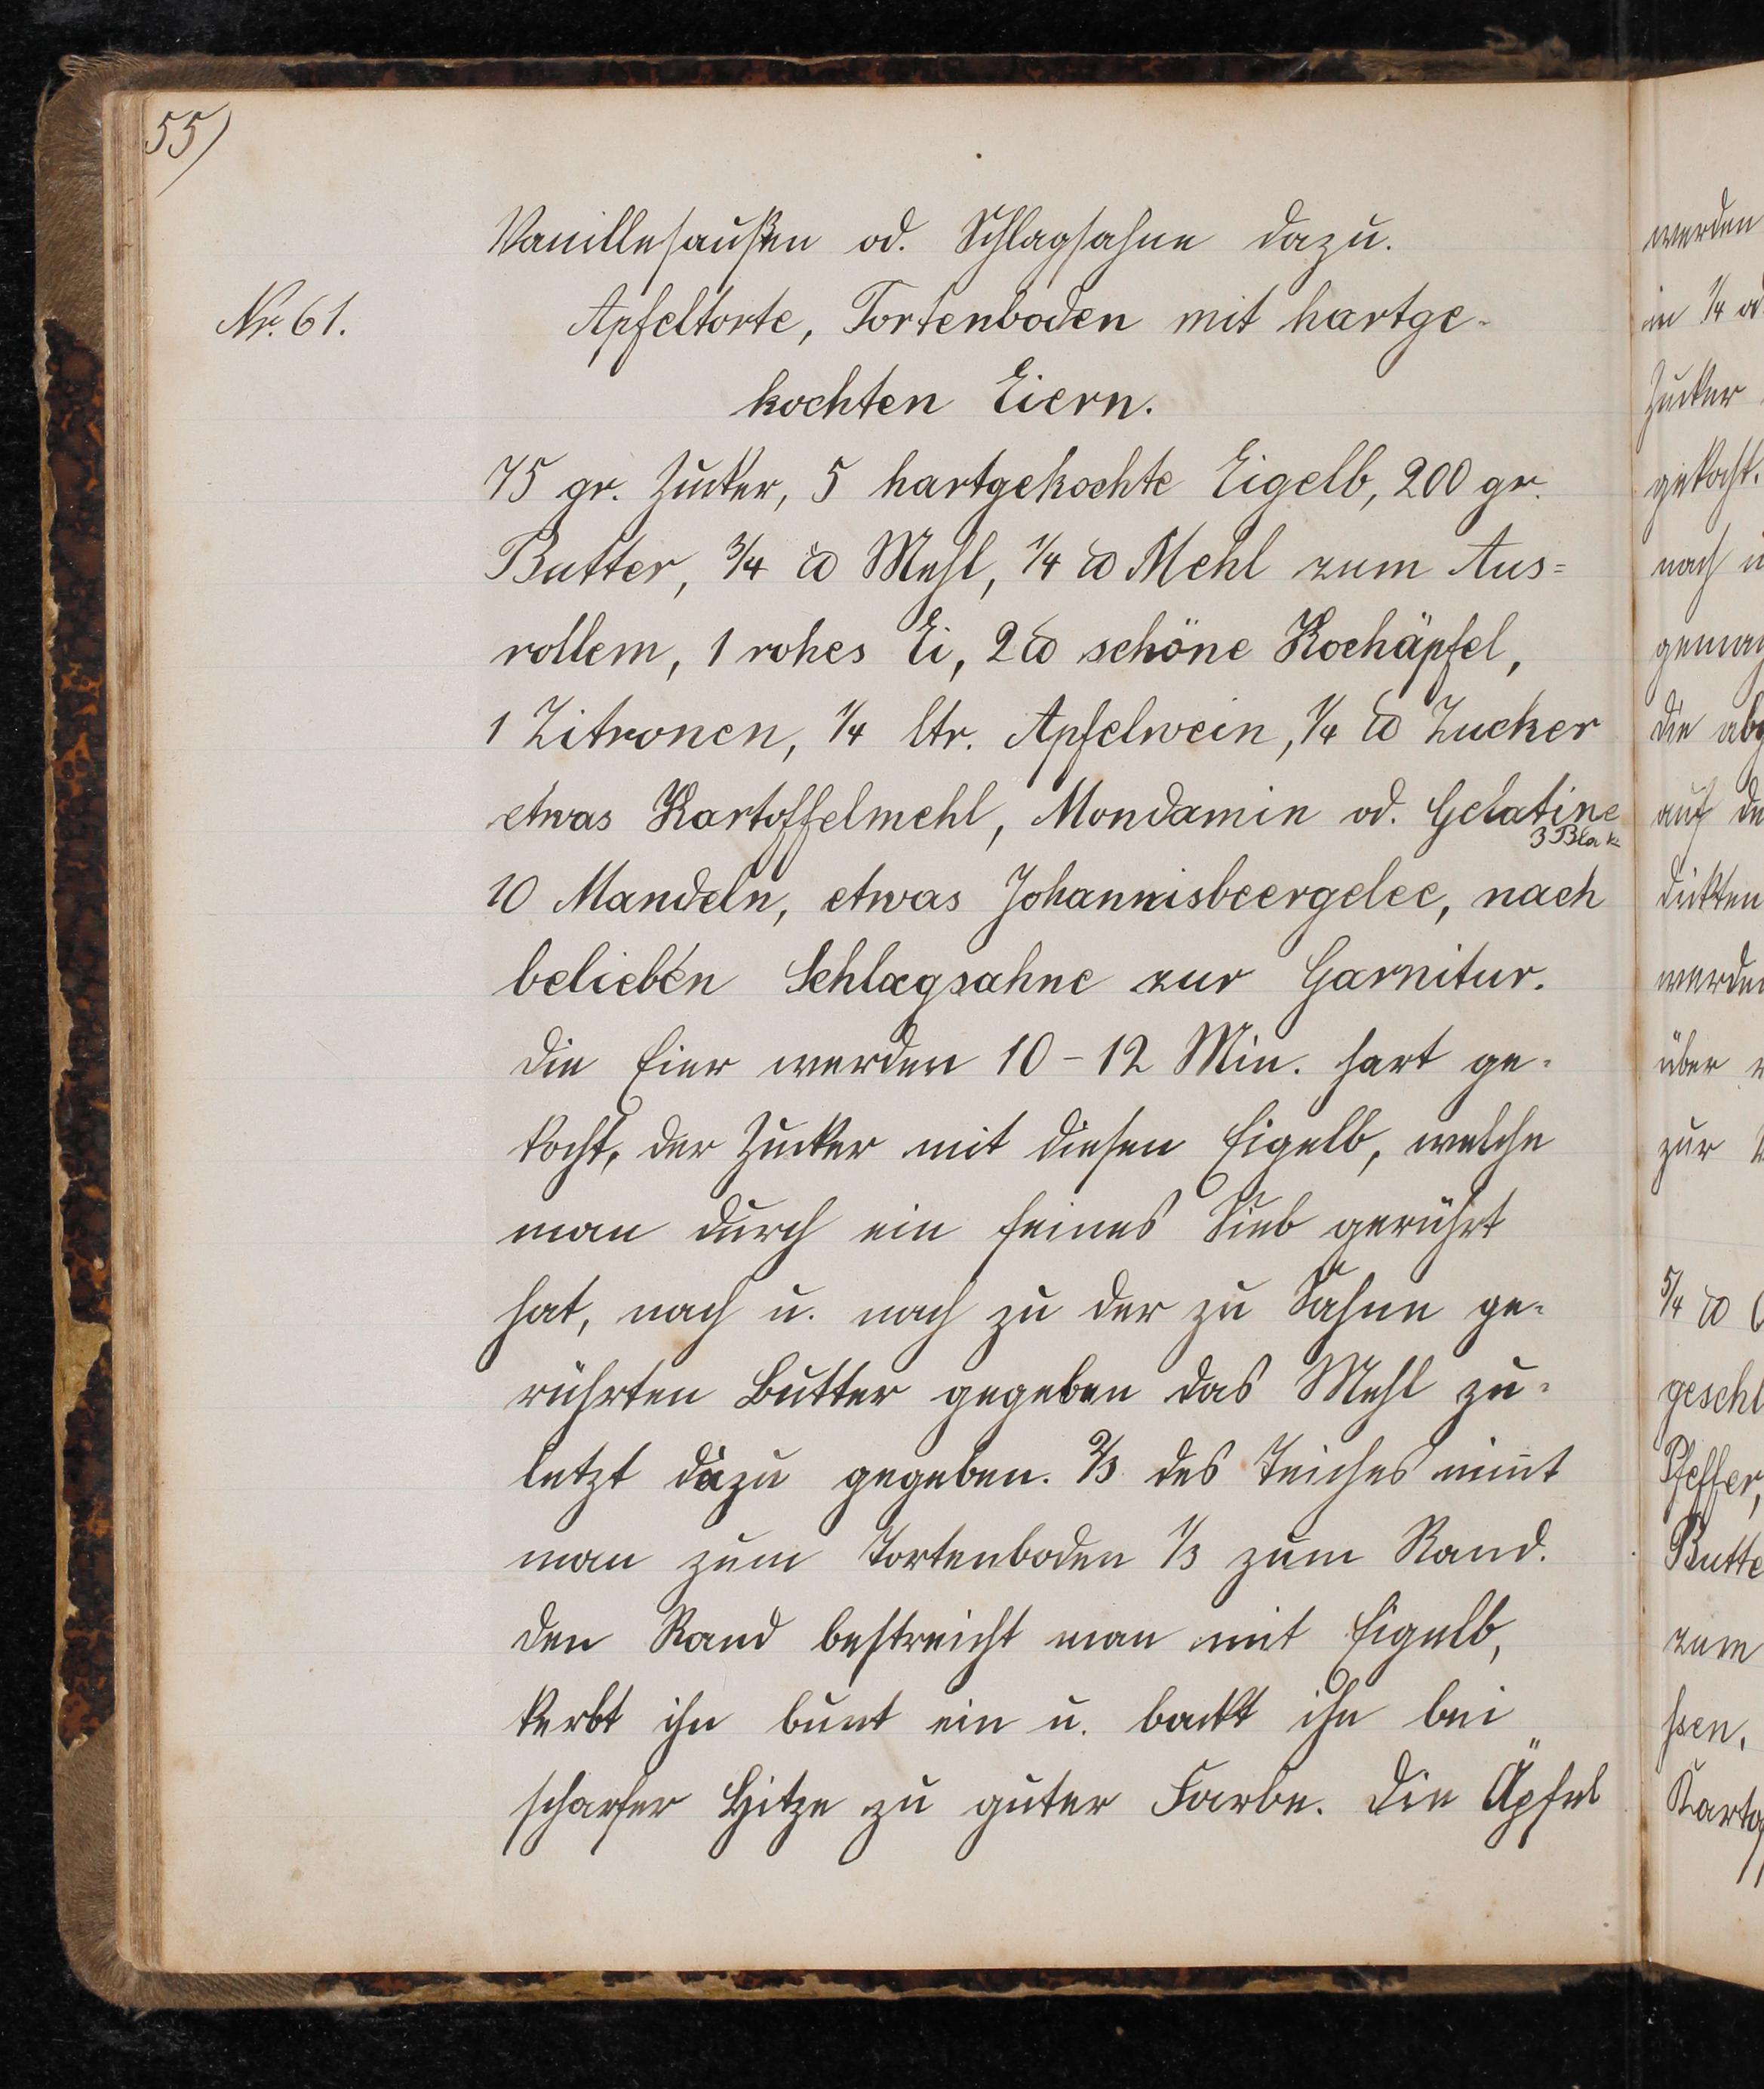 55)
Vanillesaußen od. Schlagsahne dazu.
Nr. 61. Apfeltorte, Tortenboden mit hartge-
kochten Eiern.
75 gr. Zucker, 5 hartgekochte Eigelb, 200 gr.
Butter, 3/4 ℔ Mehl, 1/4 ℔ Mehl zum Aus=
rollem, 1 rohes Ei, 2 ℔ schöne Kochäpfel,
1 Zitronen, 1/4 ltr. Apfelwein, 1/4 ℔ Zucker
etwas Kartoffelmehl, Mondamin od. Gelatine
3
10 Mandeln, etwas Johannisbeergelee, nach
belieben Schlagsahne zur Garnitur.
Die Eier werden 10-12 Min. hart ge-
kocht, der Zucker mit diesen Eigelb, welche
man durch ein feines Sieb gerührt
hat, nach u. nach zu der zu Sahne ge-
rührten Butter gegeben das Mehl zu-
letzt dazu gegeben. 2/3 des Teiches nim̅t
man zum Tortenboden 1/3 zum Rand.
Den Rand bestreicht man mit Eigelb,
kerbt ihn bunt ein u. backt ihn bei
scharfer Hitze zu guter Farbe. Die Äpfel
werden
in 1/4 od
Zucker
gekocht.
nach u
die
auf
dickten
werden
über
zur
5/4 ℔
Pfeffer,
zum